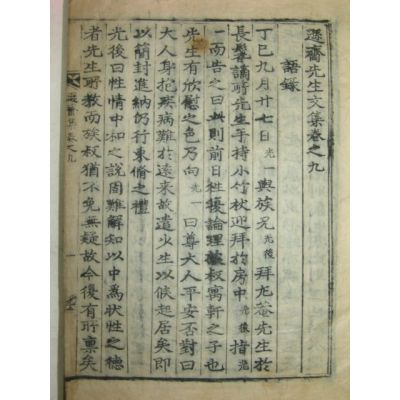 遜齋先生文集卷之九
語錄
丁巳九月廿七日光一與族兄光後拜尤菴先生於
長鬐謫所先生手持小竹杖迎拜於房中光後指光
一而告之曰此則前日論理叔寓軒之子也
先生有欣慰之色乃向光一曰尊大人平安否對曰
大人身抱疾病難於遠來故遣少生以候起居矣即
以簡封進納仍行束脩之禮
光後曰性情中和之說周難解知以中為狀性之德
者先生所教而族叔猶不免無疑故今復有所稟矣
遜齋集卷之九
一